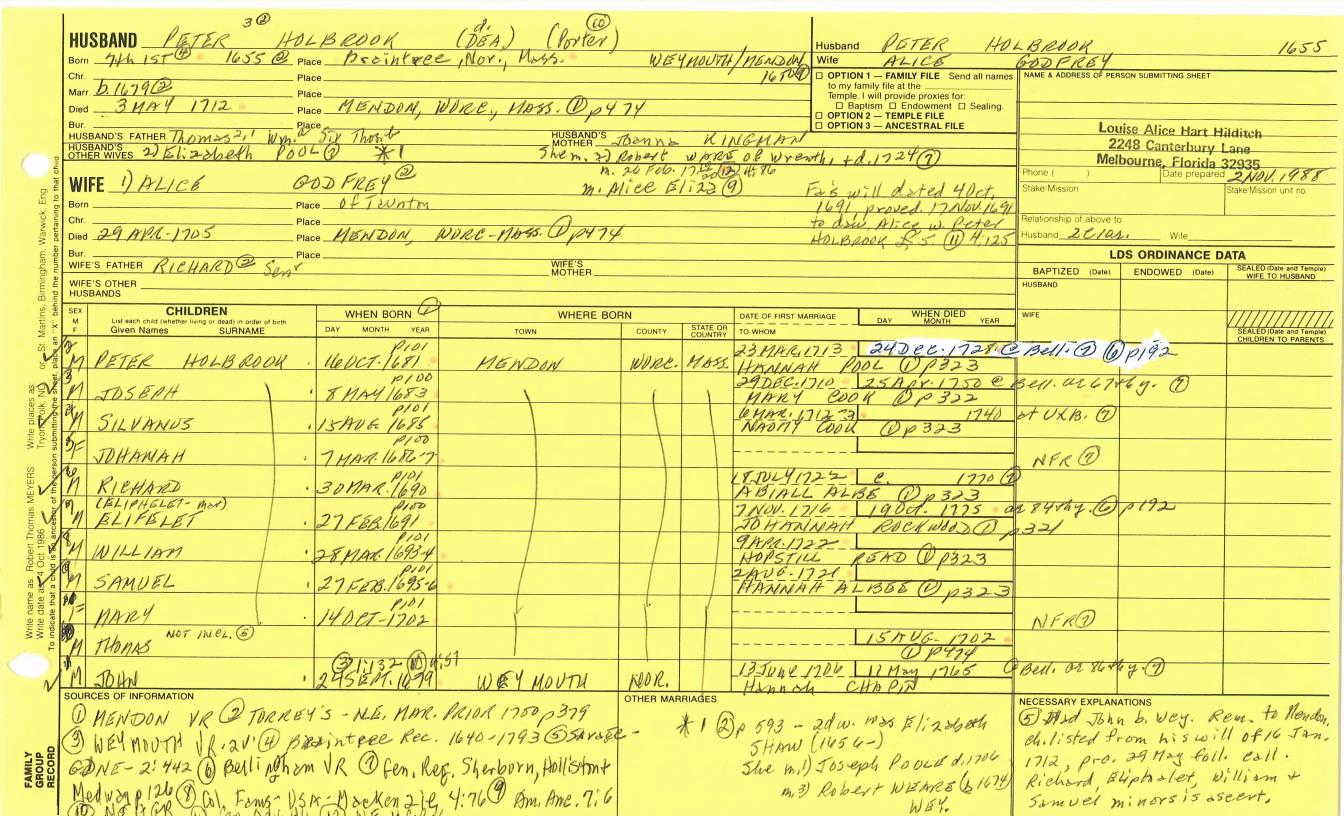 3 ②
HUSBAND PETER HOLBROOK (DEA) (Porter) ⑩
Born 7th 1ST ④ 1655 @ Place Braintree, Nor., Mass. WEYMOUTH/MENDON
Chr. Place 1680
Marr. b. 1679 ② Place
Died 3 MAY 1712 Place MENDON, WORC., MASS. ① p474
Bur. Place
HUSBAND'S FATHER Thomas 2,1 Wm.
HUSBAND'S MOTHER Joanna KINGMAN
HUSBAND'S OTHER WIVES 2) Elizabeth POOL ② *1
She m. 2) Robert WARE of Wrenth, + d. 1724 ⑦
m. 26 Feb.
WIFE 1) ALICE GODFREY ②
m. Alice Eliza ⑨
Born Place of Tanton
Chr. Place
Died 29 APR. 1705 Place MENDON, WORC-MASS. ① p474
Bur. Place
WIFE'S FATHER RICHARD ② Senr
WIFE'S MOTHER
WIFE'S OTHER HUSBANDS
Fa's will dated 4 Oct.
1691, proved. 17 Nov. 1691
to dau. Alice w. Peter
HOLBROOK £.5 ⑪ 4:125
Husband PETER HOLBROOK 1655
Wife ALICE GODFREY
☐ OPTION 1 — FAMILY FILE Send all names
to my family file at the
Temple. I will provide proxies for:
☐ Baptism ☐ Endowment ☐ Sealing.
☐ OPTION 2 — TEMPLE FILE
☐ OPTION 3 — ANCESTRAL FILE
NAME & ADDRESS OF PERSON SUBMITTING SHEET
Louise Alice Hart Hilditch
2248 Canterbury Lane
Melbourne, Florida 32935
Phone ( ) Date prepared 2 NOV. 1988
Stake/Mission Stake/Mission unit no.
Relationship of above to
Husband Wife
LDS ORDINANCE DATA
BAPTIZED (Date) ENDOWED (Date) SEALED (Date and Temple) WIFE TO HUSBAND
HUSBAND
WIFE
SEALED (Date and Temple) CHILDREN TO PARENTS
SEX M F
CHILDREN
List each child (whether living or dead) in order of birth
Given Names SURNAME
WHEN BORN ①
DAY MONTH YEAR
WHERE BORN
TOWN COUNTY STATE OR COUNTRY
DATE OF FIRST MARRIAGE
TO WHOM
WHEN DIED
DAY MONTH YEAR
2 M PETER HOLBROOK 16 OCT. 1681 p101 MENDON WORC. MASS. 23 MAR. 1713 24 DEC. 1728 @ Bell. ⑦ ⑥ p192
HANNAH POOL ① p323
3 M JOSEPH 8 MAY 1683 p100 29 DEC. 1710 25 Apr. 1750 @ Bell. ae 67th y. ⑦
MARY COOK ① p322
4 M SILVANUS 15 AUG 1685 p101 6 MAR. 1712-3 1740 at UXB. ⑦
NAOMY COOK ① p323
5 F JOHANAH 7 MAR. 1686-7 p100 NFR ⑦
6 M RICHARD 30 MAR. 1690 p101 18 JULY 1722 c. 1770 ⑦
ABIALL ALBE ① p323
(ELIPHELET-mar)
7 M ELIFELET 27 FEB. 1691 p101 7 NOV. 1716 19 Oct. 1775 ae 84th y. ⑥ p192
JOHANNAH ROCKWOOD ① p321
8 M WILLIAM 28 MAR. 1693-4 p101 9 APR. 1722
HOPSTILL READ ① p323
9 M SAMUEL 27 FEB. 1695-6 p101 2 AUG. 1721
HANNAH ALBEE ① p323
F MARY 14 OCT-1702 p101 NFR ⑦
NOT INCL. ⑤
M THOMAS 15 AUG. 1702
① p474
③ 1:132 ⑩ 4:57
M JOHN 24 SEPT. 1679 WEYMOUTH NOR. 13 June 1706 11 May 1765 @ Bell. ae 86th y. ⑦
Hannah CHAPIN
SOURCES OF INFORMATION
① MENDON VR ② TORREY'S - N.E. MAR. PRIOR 1750 p379
③ WEYMOUTH VR. 2V' ④ Braintree Rec. 1640-1793 ⑤ Savage -
GDNE - 2:442 ⑥ Bellingham VR ⑦ Gen. Reg. Sherborn, Holliston +
Medway p126 ⑧ Col. Fams - USA - Mackenzie, 4:76 ⑨ Am. Anc. 7:6
OTHER MARRIAGES
*1 ② p 593 - 2d w. was Elizabeth
SHAW (1656-)
She m. 1) Joseph POOL d. 1706
m. 3) Robert WEARE (b. 1674)
WEY.
NECESSARY EXPLANATIONS
⑤ Had John b. Wey. Rem. to Mendon.
ch. listed from his will of 16 Jan.
1712, pro. 29 May foll. call.
Richard, Eliphalet, William +
Samuel minors is ascert.
FAMILY GROUP RECORD
Write name as Robert Thomas MEYERS Write places as Tryon, Polk, NC or St. Martins, Birmingham, Warwick, Eng.
Write date as 4 Oct 1986
To indicate that a child is an ancestor of the person submitting the sheet, place an "X" behind the number pertaining to that child